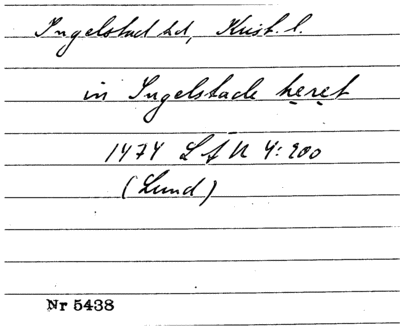 Ingelstad hd, Krist. l.
in Ingelstade heret
1474 LfU 4:200
(Lund)
Nr 5438